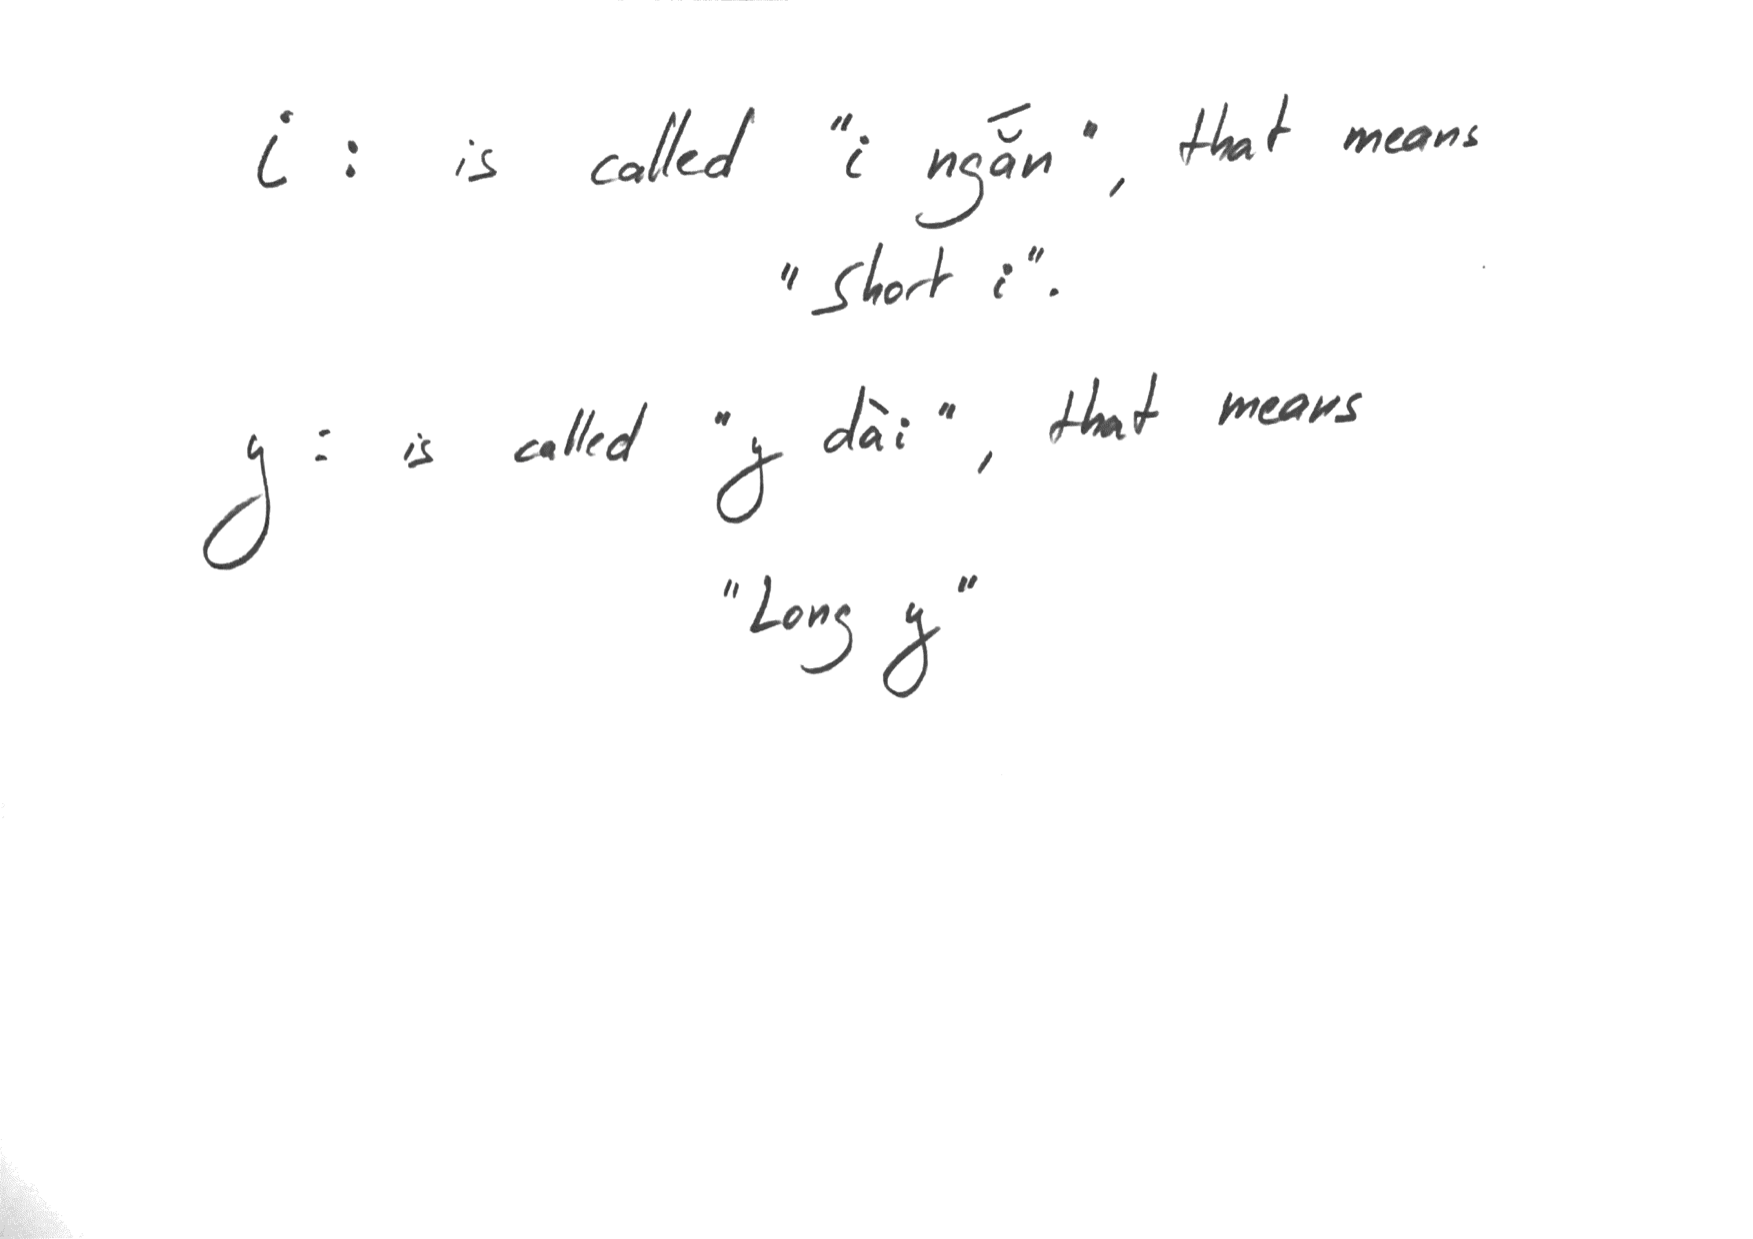 i : is called "i ngắn", that means
"Short i".
y : is called "y dài", that means
"Long y"